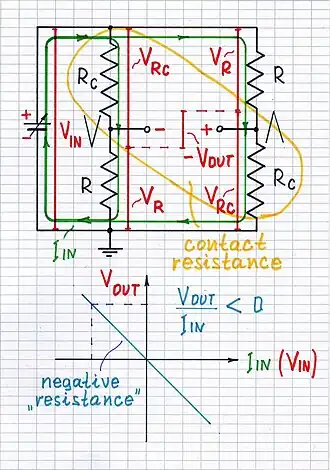 VRC
VR
RC
R
+
-
VIN
-
+
-VOUT
R
VR
VRC
RC
IIN
contact
resistance
VOUT
VOUT
IIN
< 0
IIN (VIN)
negative
"resistance"